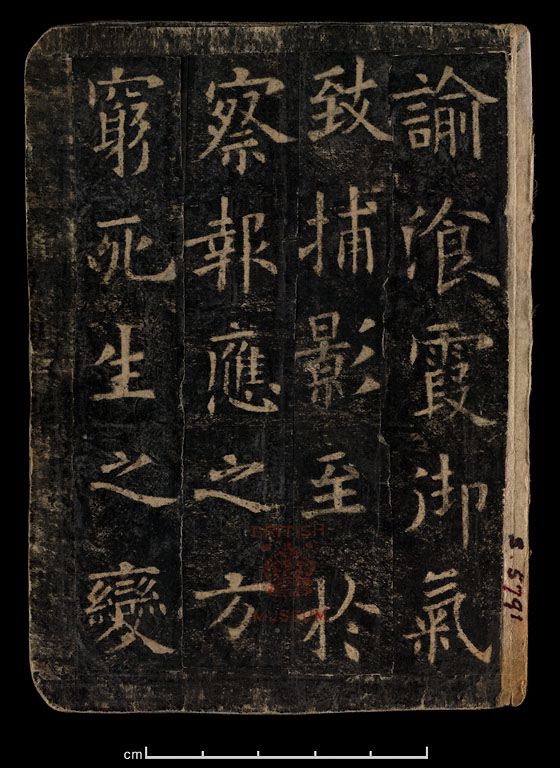 諭飡霞御氣
致捕影至於
察報應之方
窮死生之變
BRITISH
MUSEUM
S 5791
cm